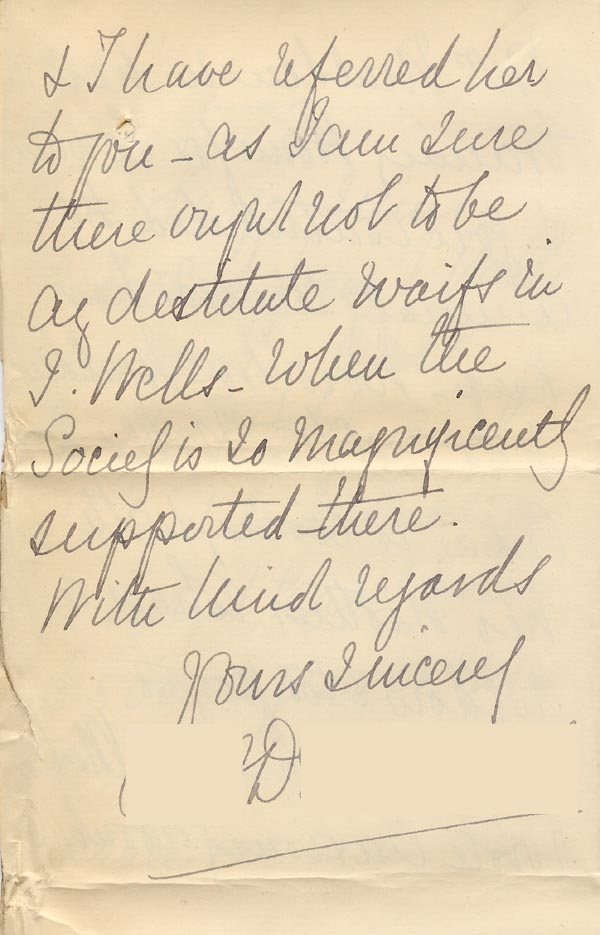 & I have referred her
to you - as I am sure
there ought not to be
any destitute waifs in
T. Wells - when the
Society is so magnificently
supported there.
With kind regards
Yours sincerely
D